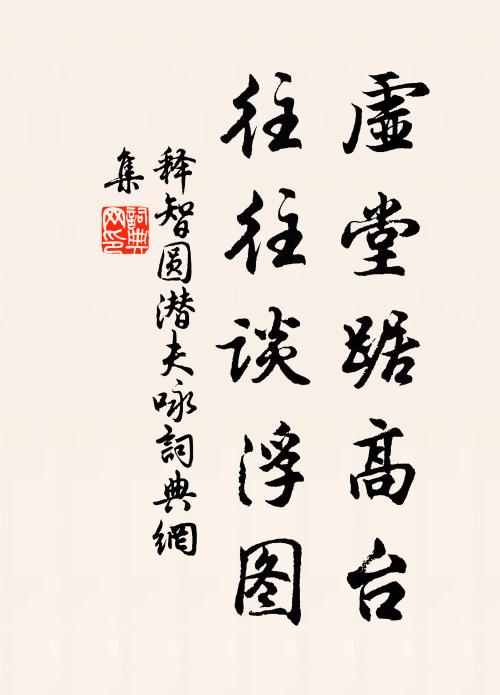 虚堂踞高台
往往谈浮图
释智圆潜夫咏詞典網
集
詞典网印